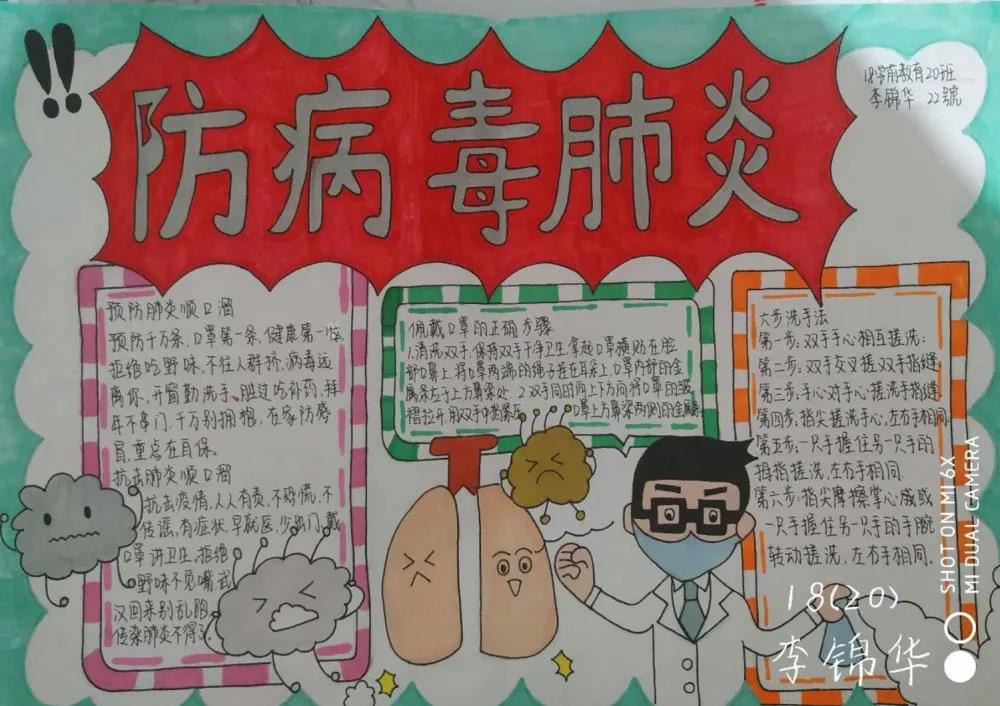 防病毒肺炎
18学前教育20班
李锦华 22號
预防肺炎顺口溜
预防千万条,口罩第一条,健康第一位,
拒绝吃野味,不往人群挤,病毒远
离你,开窗勤洗手,胜过吃补药,拜
年不串门,千万别拥抱,在家防感
冒,重点在自保。
抗击肺炎顺口溜
抗击疫情,人人有责,不恐慌,不
传谣,有症状,早就医,少出门,戴
口罩讲卫生,拒绝
野味不贪嘴,武
汉回来别乱跑,
传染肺炎不得了
佩戴口罩的正确步骤
1.清洗双手,保持双手干净卫生,拿起口罩横贴在脸
部鼻上,将口罩两端的绳子挂在耳朵上,口罩内部的金
属条在于上方鼻梁处.2.双手同时向上下方向将口罩的皱
褶拉开,用双手中指紧压 口罩上方鼻梁两侧的金属
六步洗手法
第一步:双手手心相互搓洗;
第二步:双手交叉搓双手指缝
第三步:手心对手心搓洗手指缝
第四步:指尖搓洗手心,左右手相同
第五步:一只手握住另一只手的
拇指搓洗,左右手相同
第六步:指尖摩擦掌心或
一只手握住另一只手的手腕
转动搓洗,左右手相同。
18(20)
李锦华
SHOT ON MI 6X
MI DUAL CAMERA